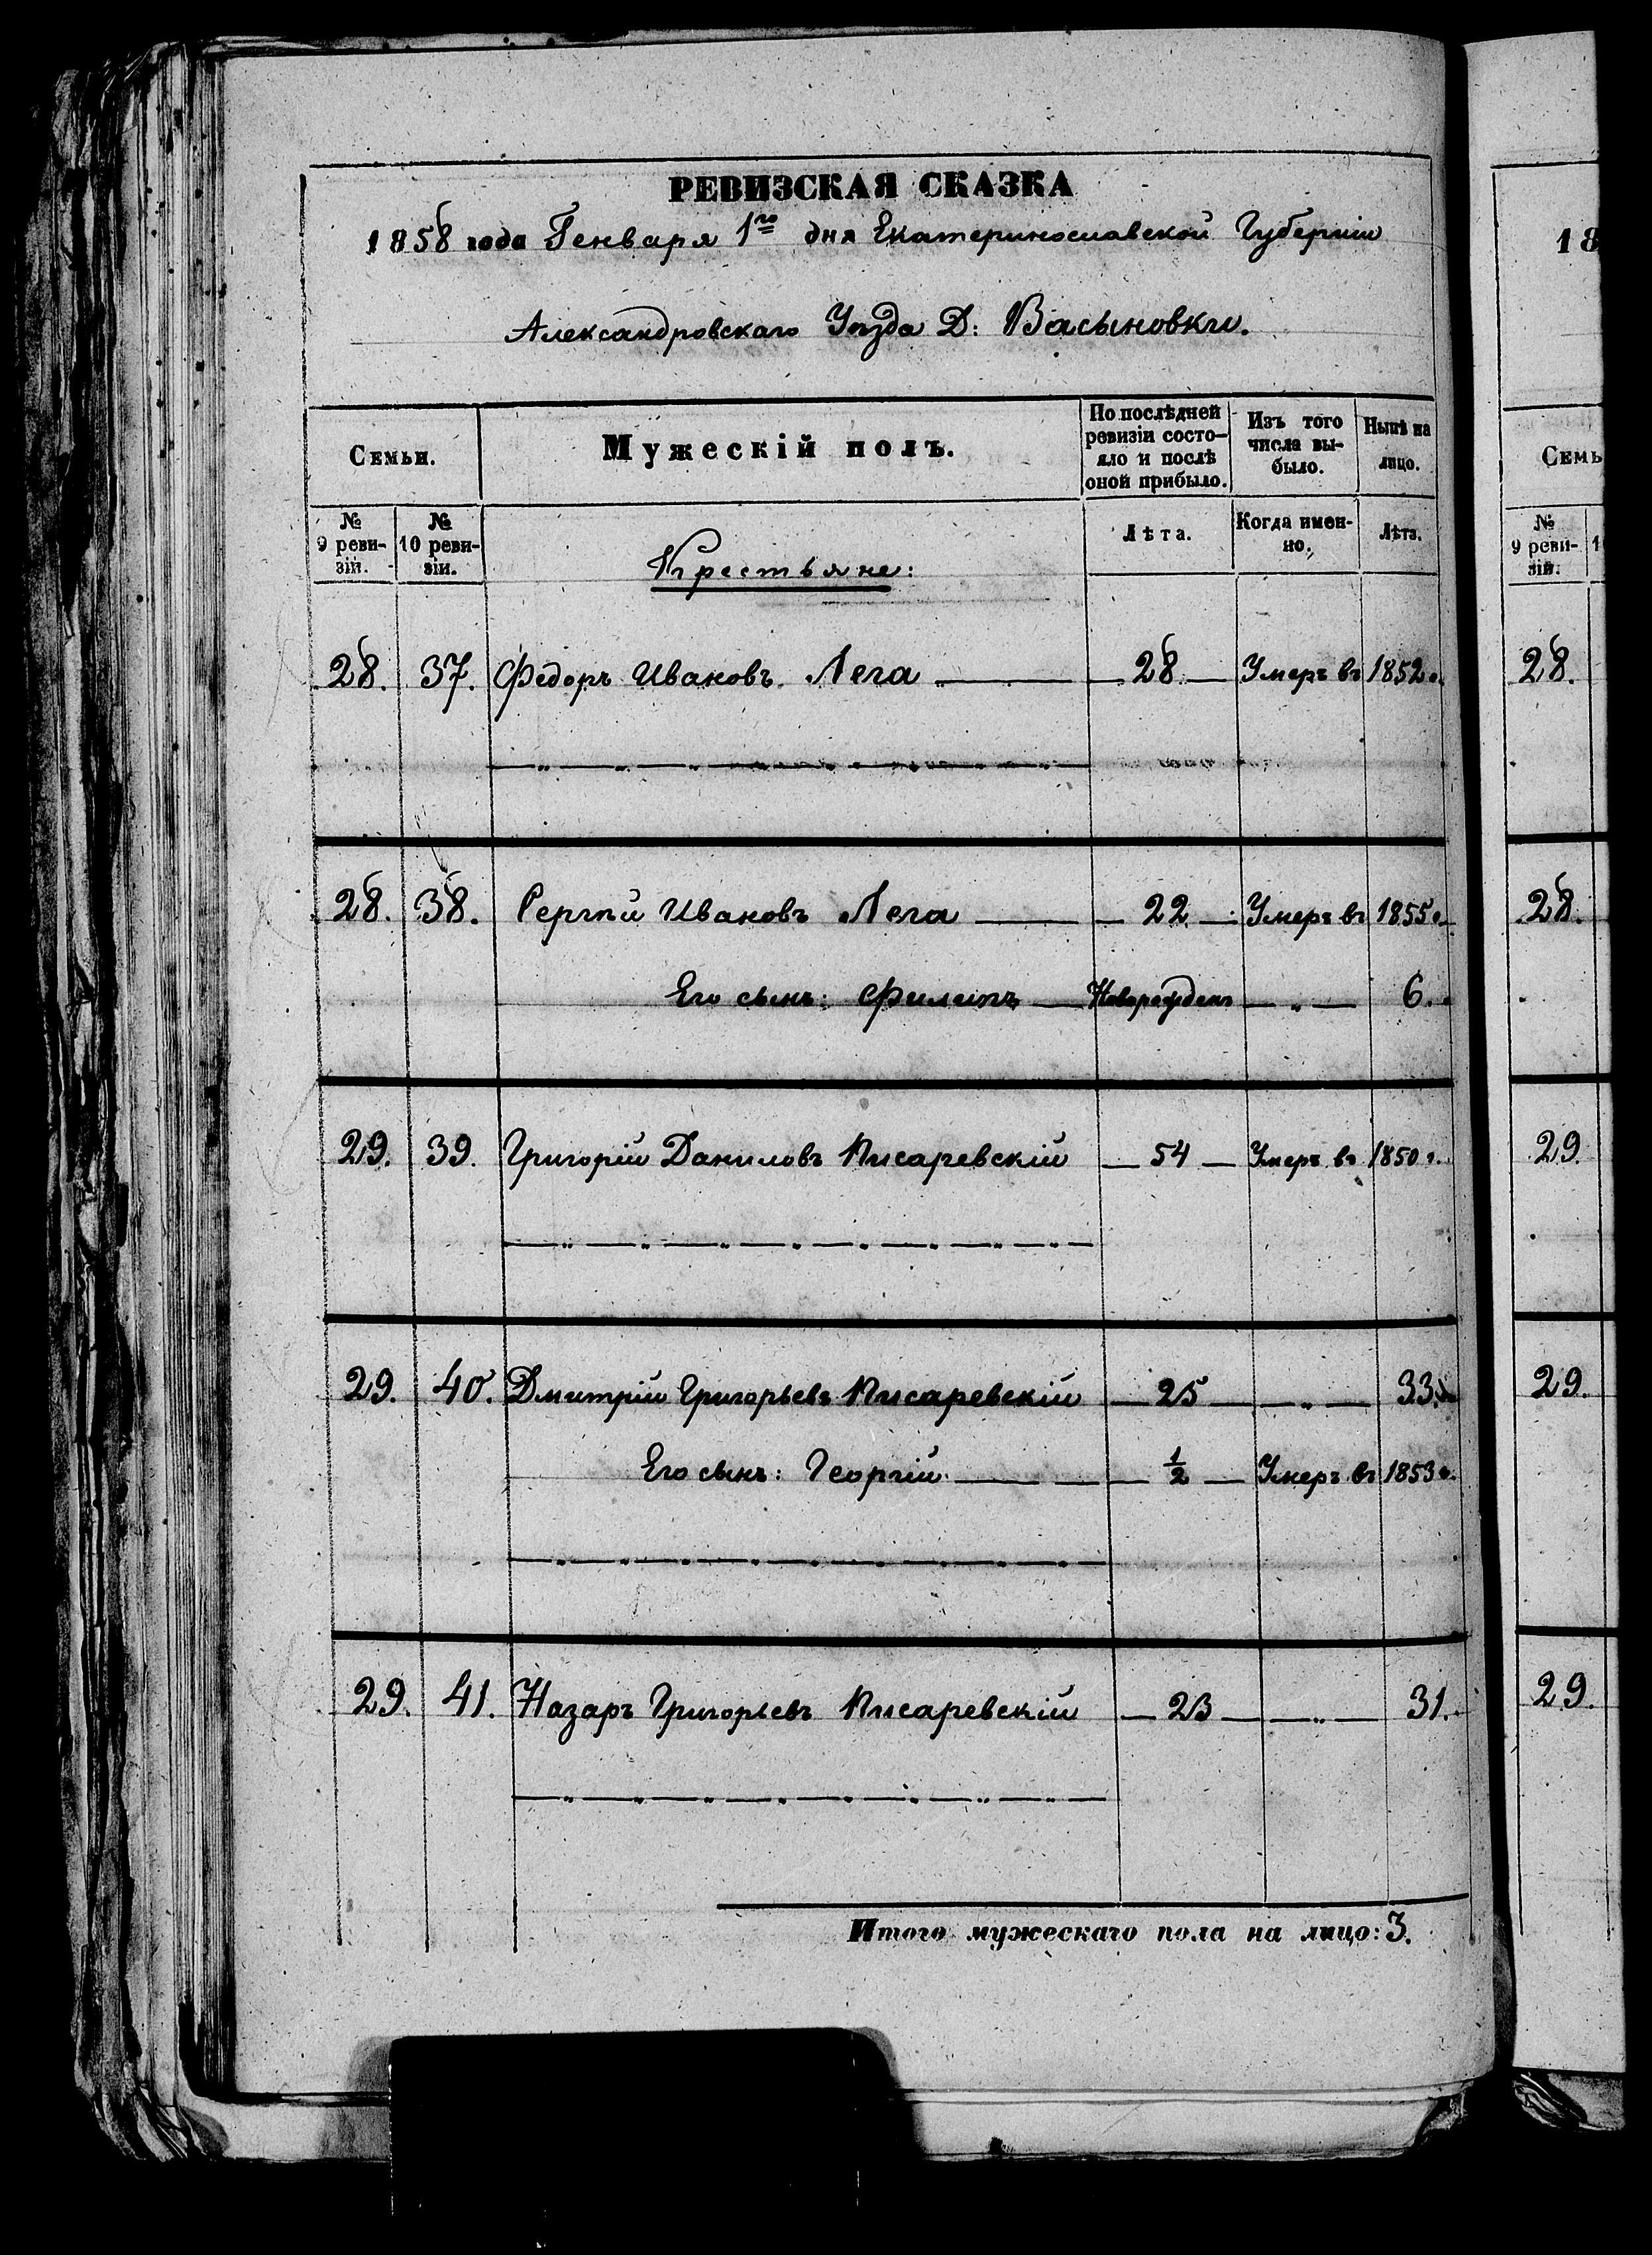 РЕВИЗСКАЯ СКАЗКА
1858 года Генваря 1го дня Екатеринославской Губерніи
Александровскаго Уѣзда Д: Васыновки.
Семьи.
Мужескій полъ.
По послѣдней ревизіи состояло и послѣ оной прибыло.
Изъ того числа выбыло.
Нынѣ на лицо.
№ 9 ревизіи.
№ 10 ревизіи.
Крестьяне:
Лѣта.
Когда именно.
Лѣта.
28. 37. Федоръ Ивановъ Лега — 28 — Умеръ въ 1852 г.
28. 38. Сергѣй Ивановъ Лега — 22 — Умеръ въ 1855 г.
Его сынъ: Филипъ — Новорожденъ — „ — 6.
29. 39. Григорій Даниловъ Писаревскій — 54 — Умеръ въ 1850 г.
29. 40. Дмитрій Григорьевъ Писаревскій — 25 — „ — 33.
Его сынъ: Георгій — ½ — Умеръ въ 1853 г.
29. 41. Назаръ Григорьевъ Писаревскій — 23 — „ — 31.
Итого мужескаго пола на лицо: 3.
18
Семь
№ 9 ревизіи.
28.
28.
29.
29.
29.